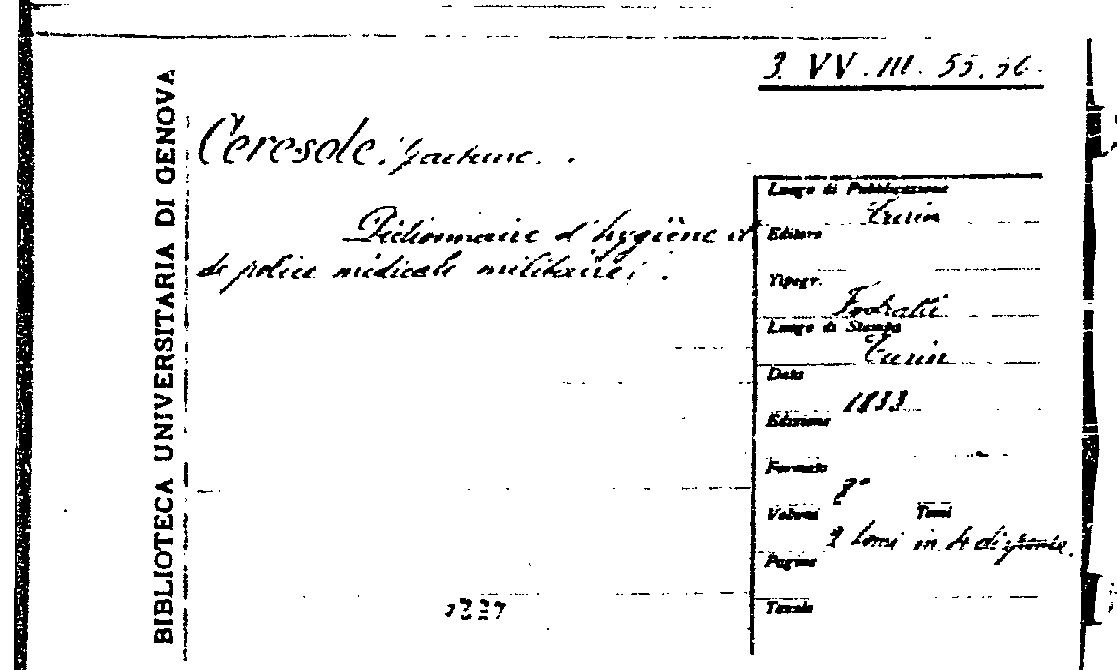 BIBLIOTECA UNIVERSITARIA DI GENOVA
3. VV. III. 55.56.
Ceresole, Gaetano.
Dictionnaire d'hygiène et
de police médicale militaires.
Luogo di Pubblicazione
Turin
Editore
Tipogr.
Luogo di Stampa
Turin
Data
1833
Edizione
Formato
8°
Volumi Tomi
2 tomi in
Pagine
Tavole